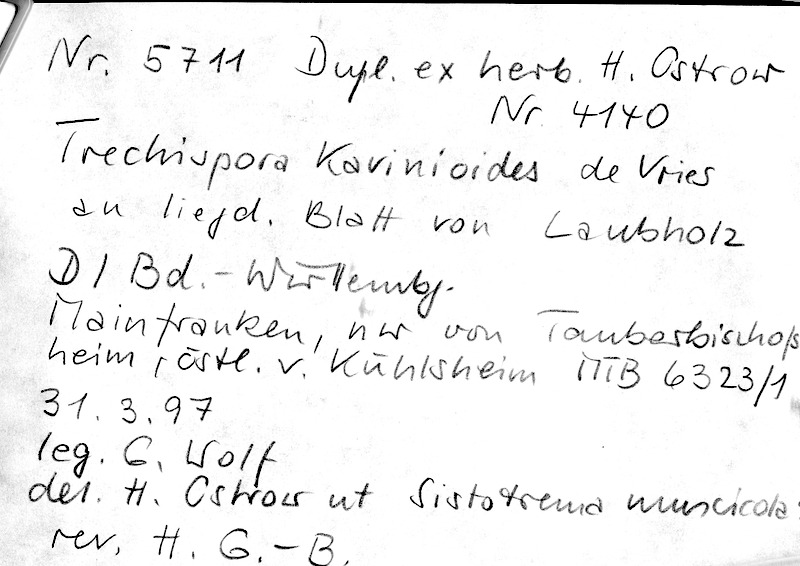 Nr. 5711 Dupl. ex herb. H. Ostrow
Nr. 4140
Trechispora Kavinioides de Vries
an liegd. Blatt von Laubholz
D / Bd.-Württembg.
Mainfranken, nw von Tauberbischofs
heim, östl. v. Kühlsheim MTB 6323/1
31.3.97
leg. G. Wolf
det. H. Ostrow ut Sistotrema muscicola:
rev. H. G.-B.